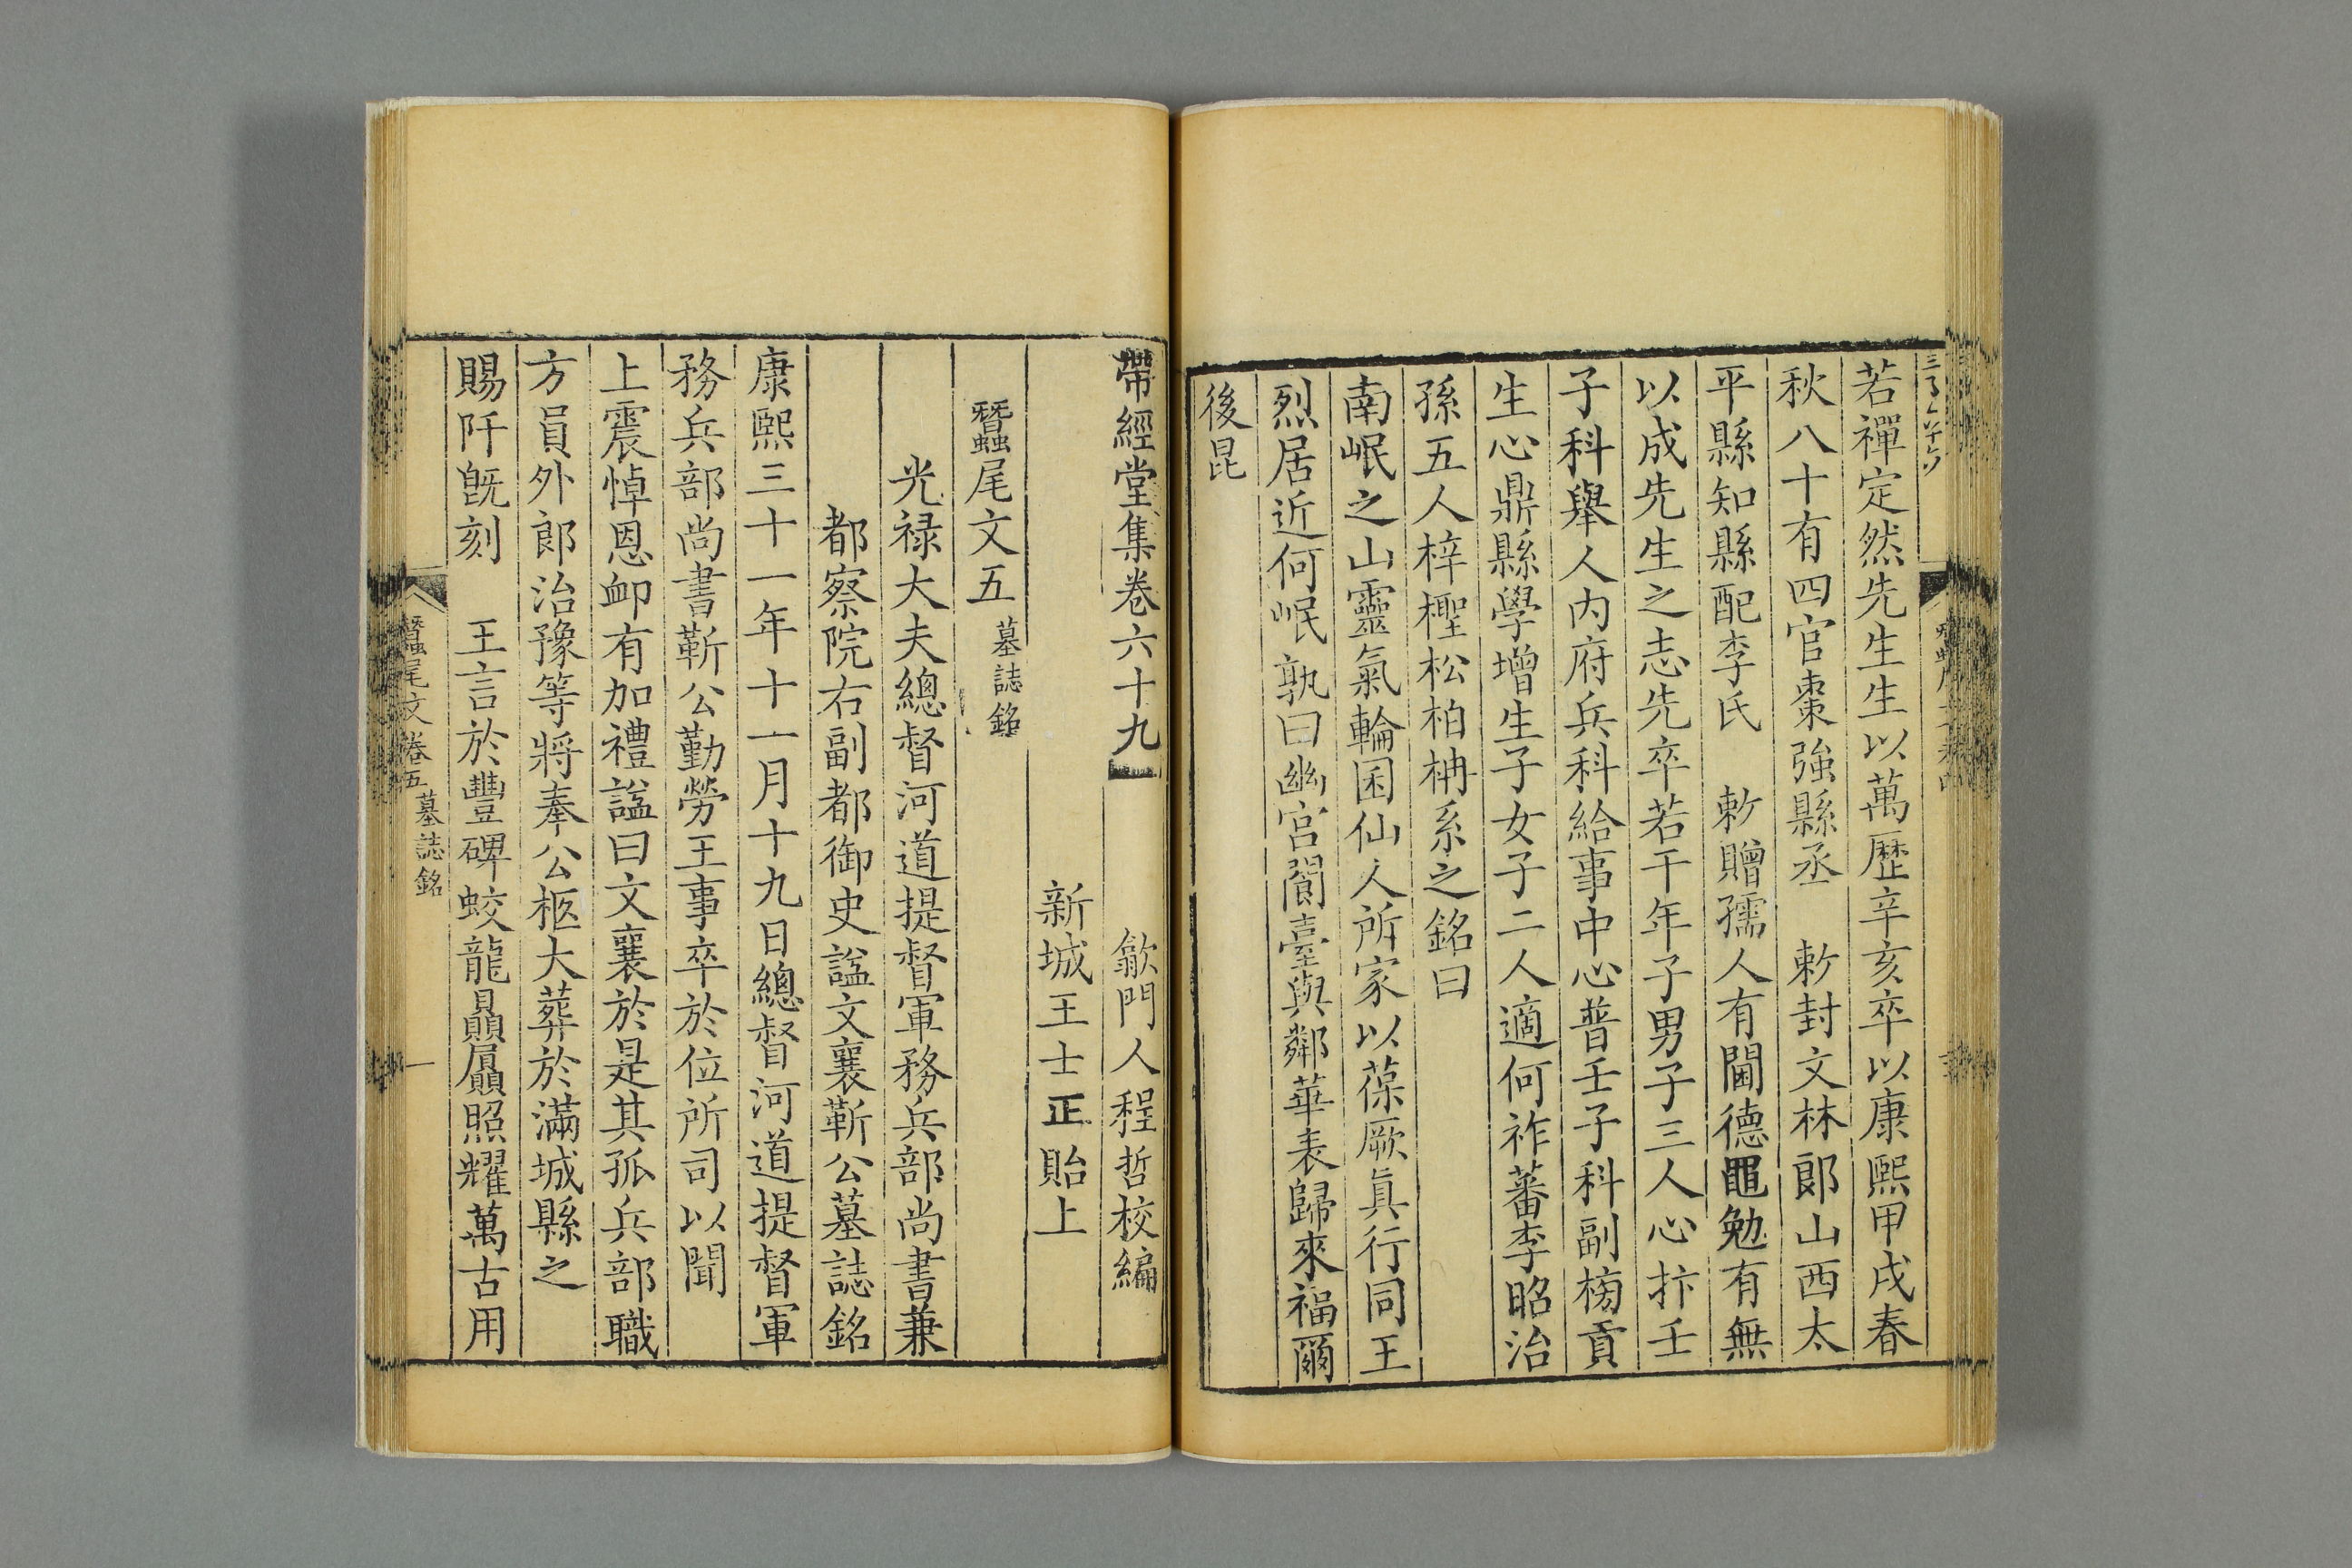 若禪定然先生生以萬歷辛亥卒以康熙甲戌春
秋八十有四官棗強縣丞　敕封文林郎山西太
平縣知縣配李氏　敕贈孺人有閫德黽勉有無
以成先生之志先卒若干年子男子三人心抃壬
子科舉人內府兵科給事中心普壬子科副榜貢
生心鼎縣學增生子女子二人適何祚蕃李昭治
孫五人梓檉松柏柟系之銘曰
南岷之山靈氣輪囷仙人所家以葆厥眞行同王
烈居近何岷孰曰幽宮閬臺與鄰華表歸來福爾
後昆
帶經堂集卷六十九　歙門人程哲校編
新城王士正貽上
蠶尾文五 墓誌銘
光祿大夫總督河道提督軍務兵部尚書兼
都察院右副都御史諡文襄靳公墓誌銘
康熙三十一年十一月十九日總督河道提督軍
務兵部尚書靳公勤勞王事卒於位所司以聞
上震悼恩卹有加禮諡曰文襄於是其孤兵部職
方員外郎治豫等將奉公柩大葬於滿城縣之
賜阡旣刻　王言於豐碑蛟龍贔屭照耀萬古用
蠶尾文卷五 墓誌銘　一